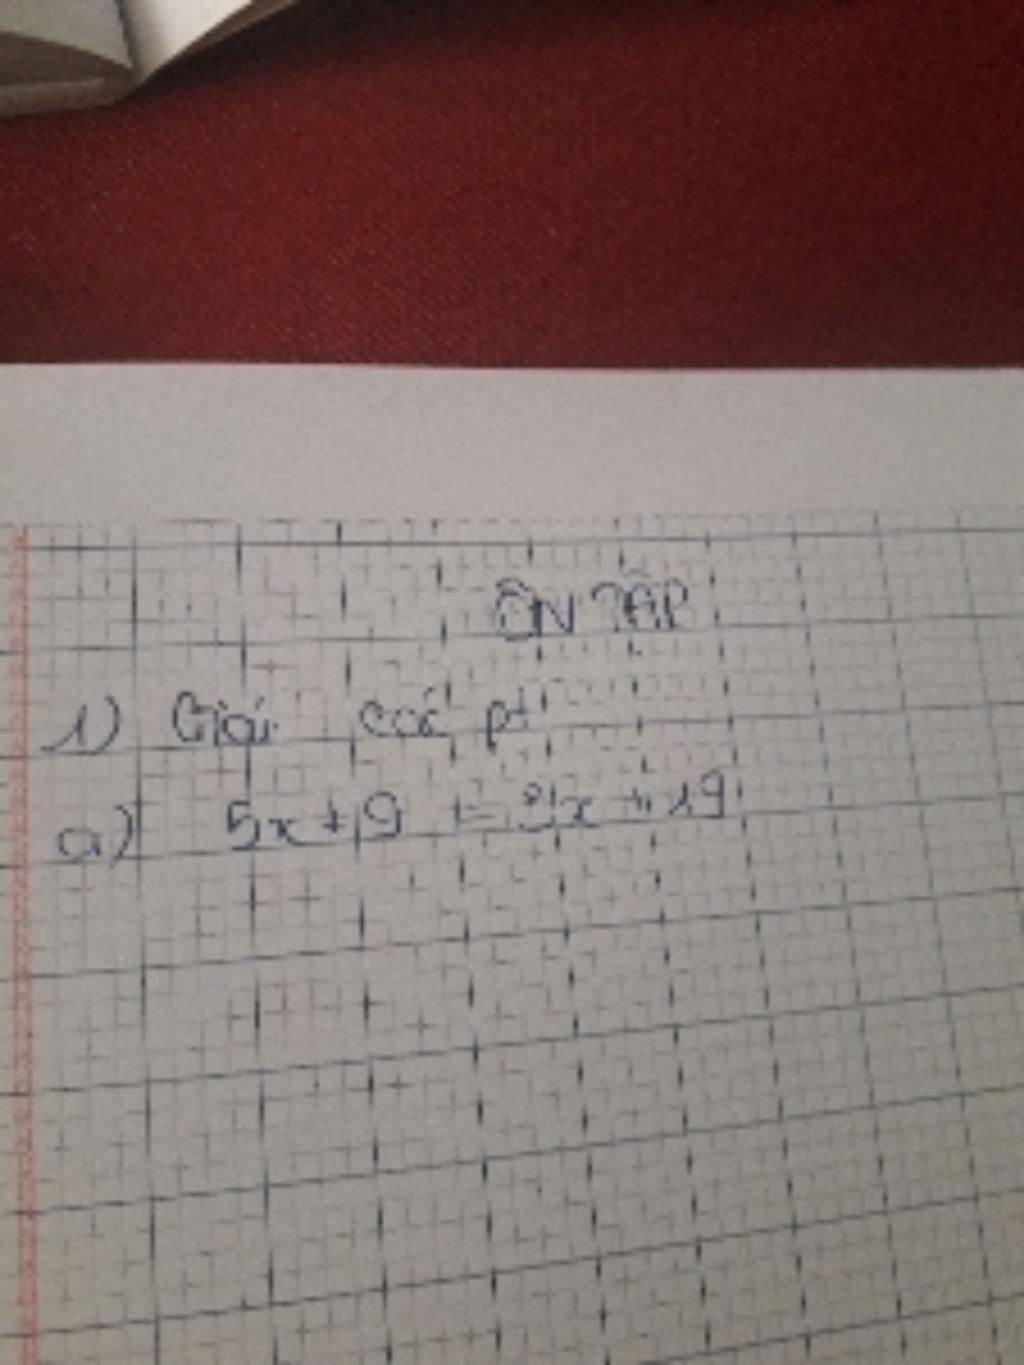 ÔN TẬP
1) Giải các pt
a) 5x + 9 = 3x + 19